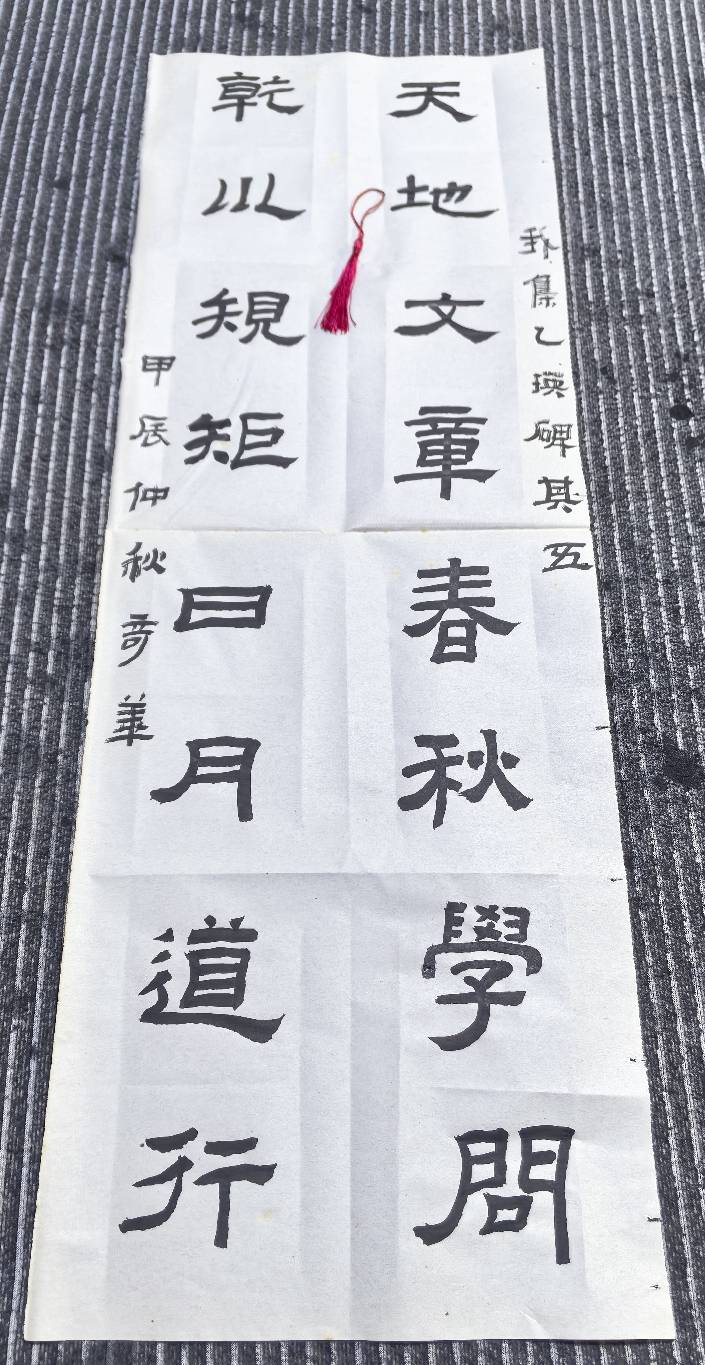 我集乙瑛碑其五
天地文章春秋學問
乾川規矩日月道行
甲辰仲秋奇華